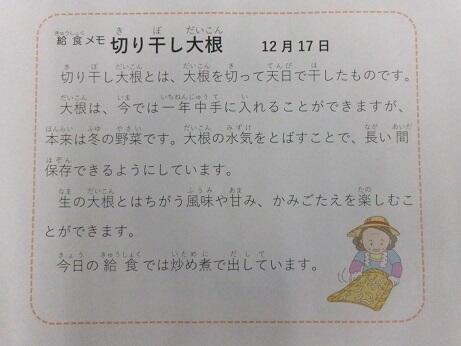 給食メモ 切り干し大根 12月17日
切り干し大根とは、大根を切って天日で干したものです。
大根は、今では一年中手に入れることができますが、
本来は冬の野菜です。大根の水気をとばすことで、長い間
保存できるようにしています。
生の大根とはちがう風味や甘み、かみごたえを楽しむこ
とができます。
今日の給食では炒め煮で出しています。